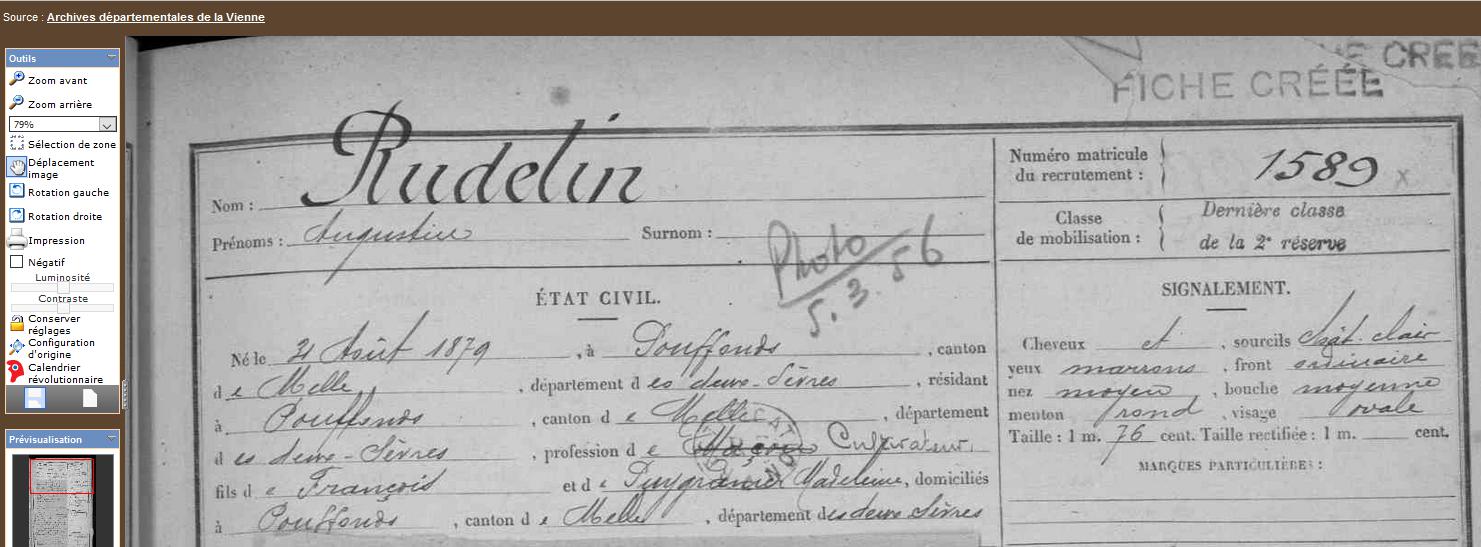 Source : Archives départementales de la Vienne
Outils
Zoom avant
Zoom arrière
79%
Sélection de zone
Déplacement
image
Rotation gauche
Rotation droite
Impression
Négatif
Luminosité
Contraste
Conserver
réglages
Configuration
d'origine
Calendrier
révolutionnaire
Prévisualisation
FICHE CRÉÉE
E CREE
Nom : Rudelin
Prénoms : Augustin Surnom :
Numéro matricule
du recrutement : 1589 x
Classe
de mobilisation :
Dernière classe
de la 2e réserve
Photo
5.3.56
ÉTAT CIVIL.
Né le 21 Août 1879, à Pouffonds, canton
de Melle, département des deux-Sèvres, résidant
à Pouffonds, canton de Melle, département
des deux-Sèvres, profession de Cultivateur.
fils de François et de Puygranier Madeleine, domiciliés
à Pouffonds, canton de Melle, département des deux Sèvres
SIGNALEMENT.
Cheveux et, sourcils chât. clair
yeux marrons, front ordinaire
nez moyen, bouche moyenne
menton rond, visage ovale
Taille : 1 m. 76 cent. Taille rectifiée : 1 m. cent.
MARQUES PARTICULIÈRES :